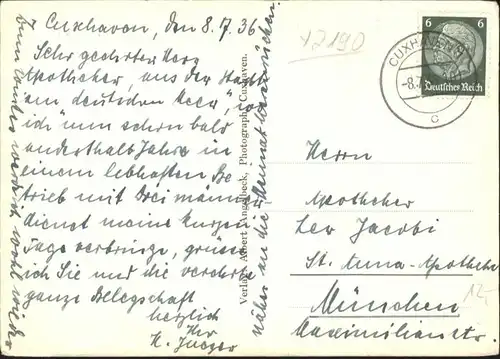 Cuxhaven, den 8.7.36
Sehr geehrter Herr
Apotheker, aus der Stadt
am deutschen Meer, wo
ich nun schon bald
anderthalb Jahre in
einem lebhaften Be-
trieb mit drei männ
dienst meine kurzen
Tage verbringe, grüße
ich Sie und die verehrte
ganze Belegschaft
herzlich
Ihr
näher an die Heimat heranrücken.
Verlag: Albert Angelbeck, Photograph, Cuxhaven.
42190
6 6
Deutsches Reich
CUXHAVEN
-8.7.
c
Herrn
Apotheker
Leo Jacobi
St. Anna-Apotheke
München
Maximilianstr.